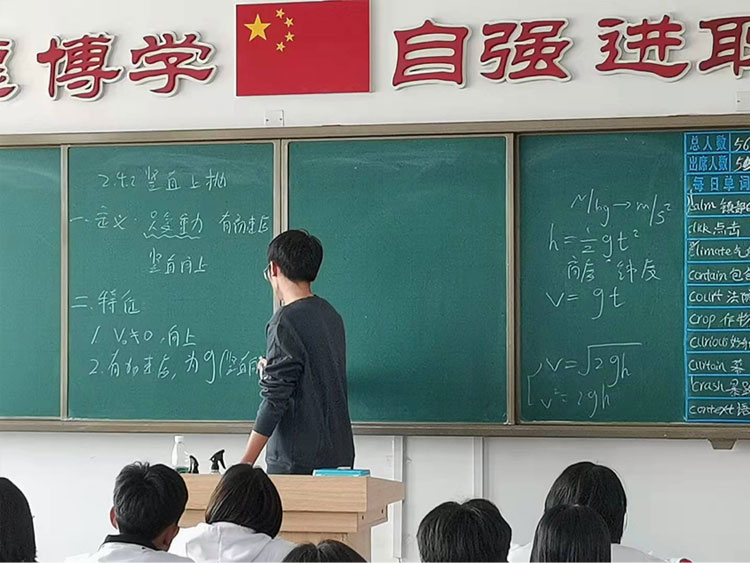 博学
自强进取
2.4.2 竖直上抛
一、定义: 只受重力 有初速度
竖直向上
二、特征:
1. V₀≠0, 向上
2. 有加速度, 为g(竖直向
N/kg → m/s²
h=½gt²
高度 纬度
v=gt
v=√2gh
v²=2gh
总人数 56
出席人数
每日单词
click 点击
climate 气
contain 包含
court 法院
crop 作物
curious 好
curtain
crash
context